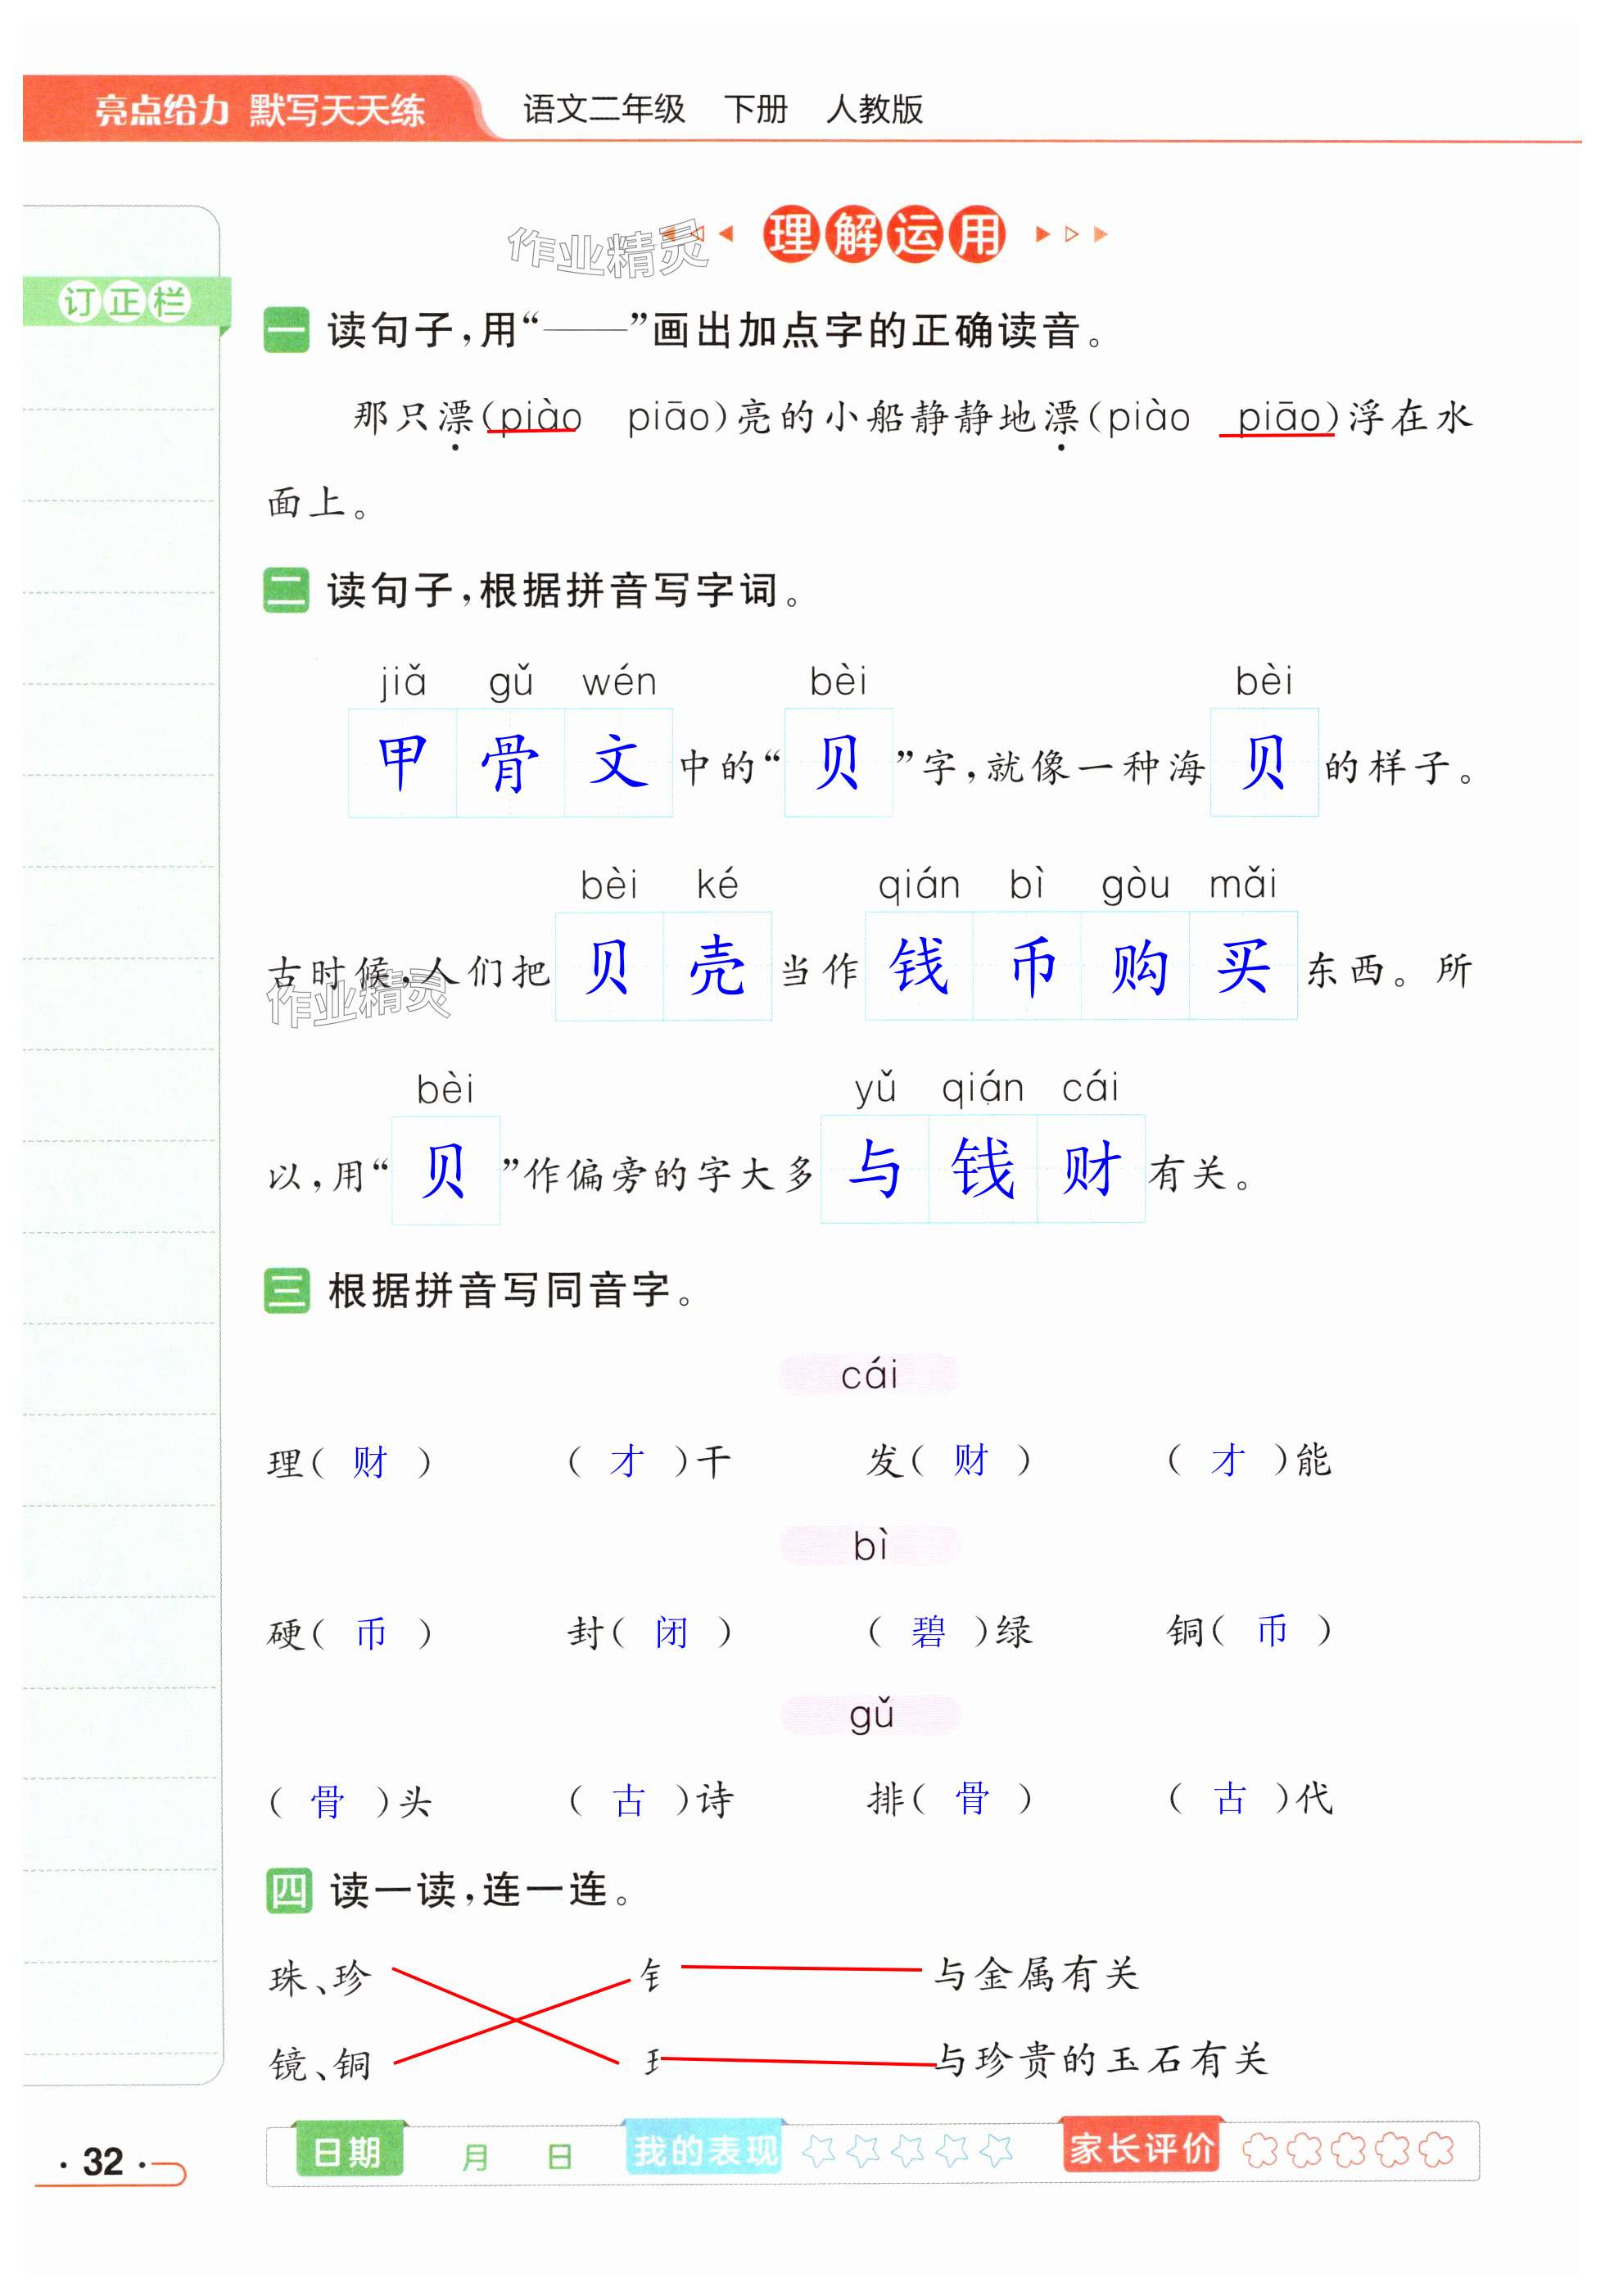 亮点给力 默写天天练 语文二年级 下册 人教版
作业精灵
理解运用
订正栏
一 读句子,用“——”画出加点字的正确读音。
那只漂(piào piāo)亮的小船静静地漂(piào piāo)浮在水
面上。
二 读句子,根据拼音写字词。
jiǎ gǔ wén bèi bèi
甲骨文中的“贝”字,就像一种海贝的样子。
bèi ké qián bì gòu mǎi
古时候,人们把贝壳当作钱币购买东西。所
作业精灵
bèi yǔ qián cái
以,用“贝”作偏旁的字大多与钱财有关。
三 根据拼音写同音字。
cái
理(财) (才)干 发(财) (才)能
bì
硬(币) 封(闭) (碧)绿 铜(币)
gǔ
(骨)头 (古)诗 排(骨) (古)代
四 读一读,连一连。
珠、珍 钅 与金属有关
镜、铜 王 与珍贵的玉石有关
日期 月 日 我的表现 家长评价
·32·